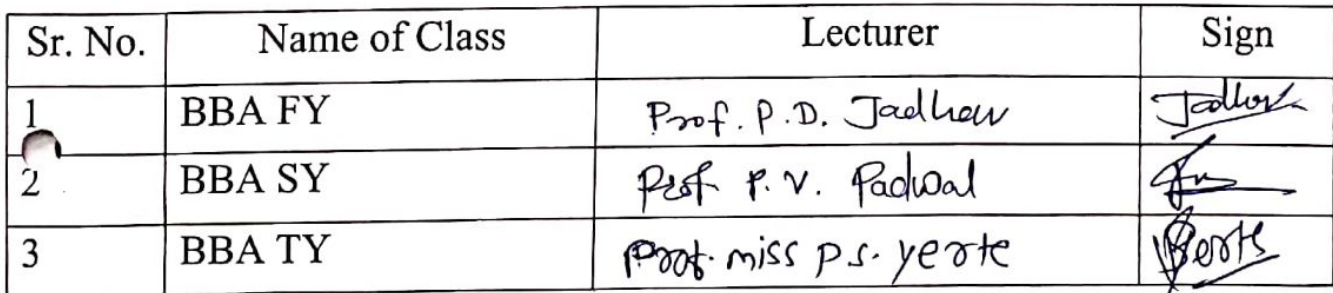 Sr. No. Name of Class Lecturer Sign
1 BBA FY Prof. P.D. Jadhav Jadhav
2 BBA SY Prof. P. V. Padwal
3 BBA TY Prof. miss P.S. yerte